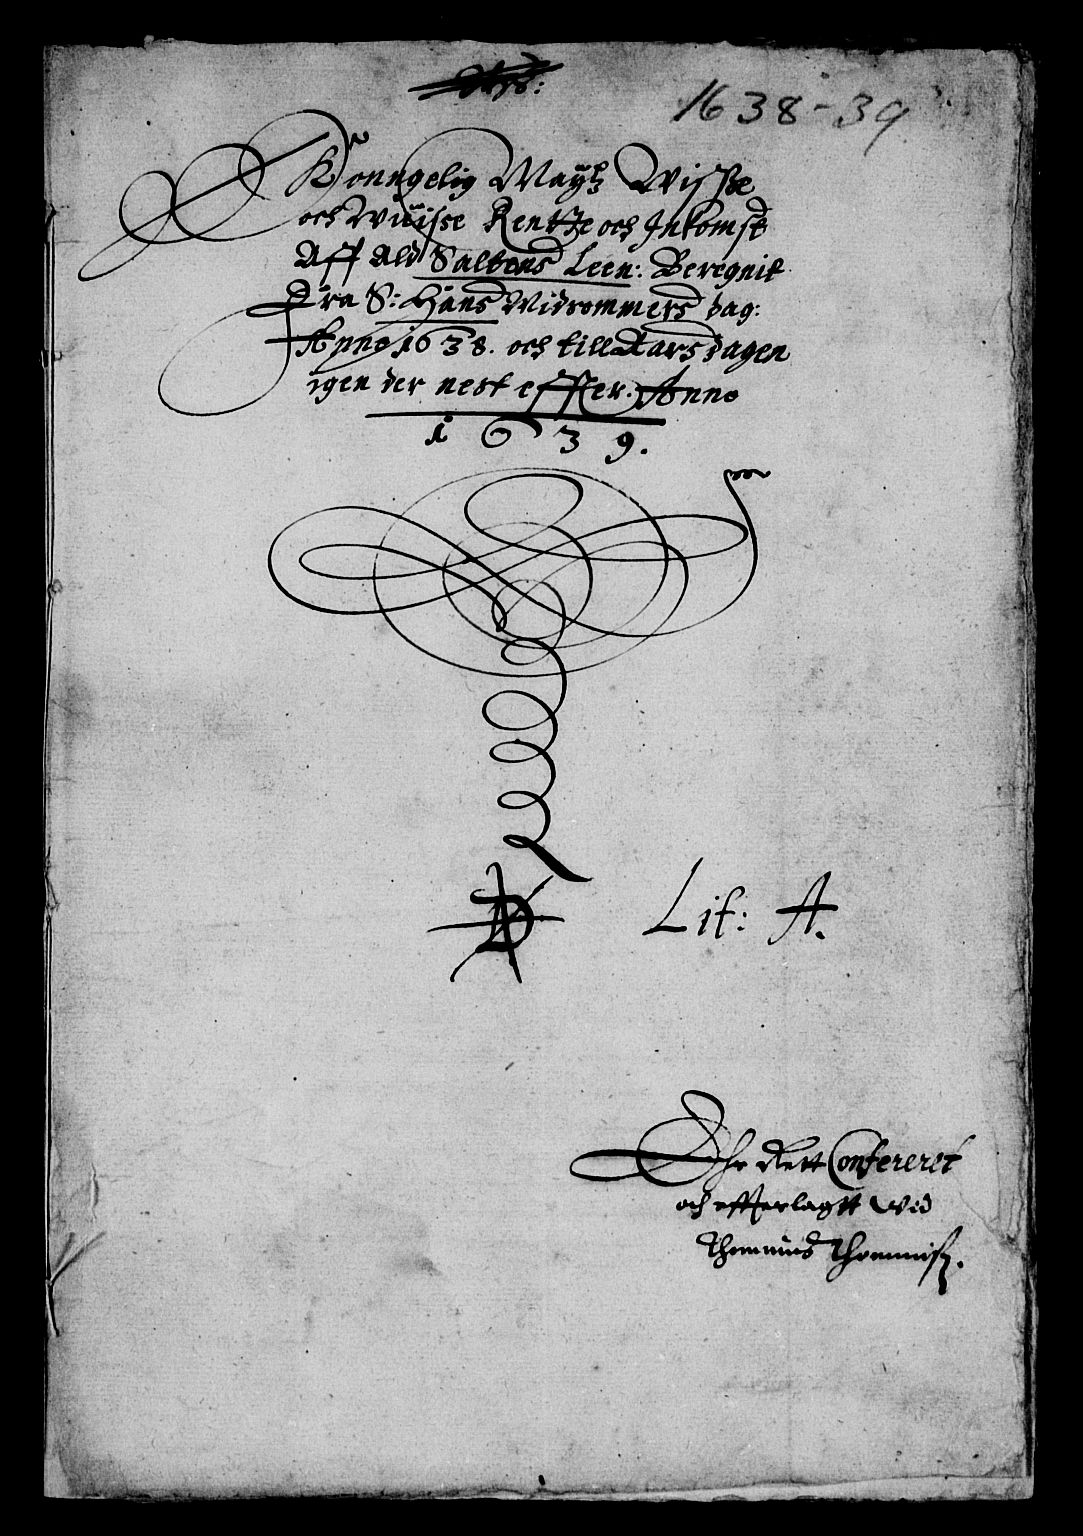 1638-39
Konngelig Maytz Wisse
och Wuisse Rentte och Inkomst
Aff Ald Saltens Leen: Beregnit
Fra S: Hans Midsommers dag:
Anno 1638. och till Aarsdagen
igen der nest effter. Anno
1639.
Lit: A.
Ehr Rett Confereret
och effterlagtt wed
Thommis Thommisz.